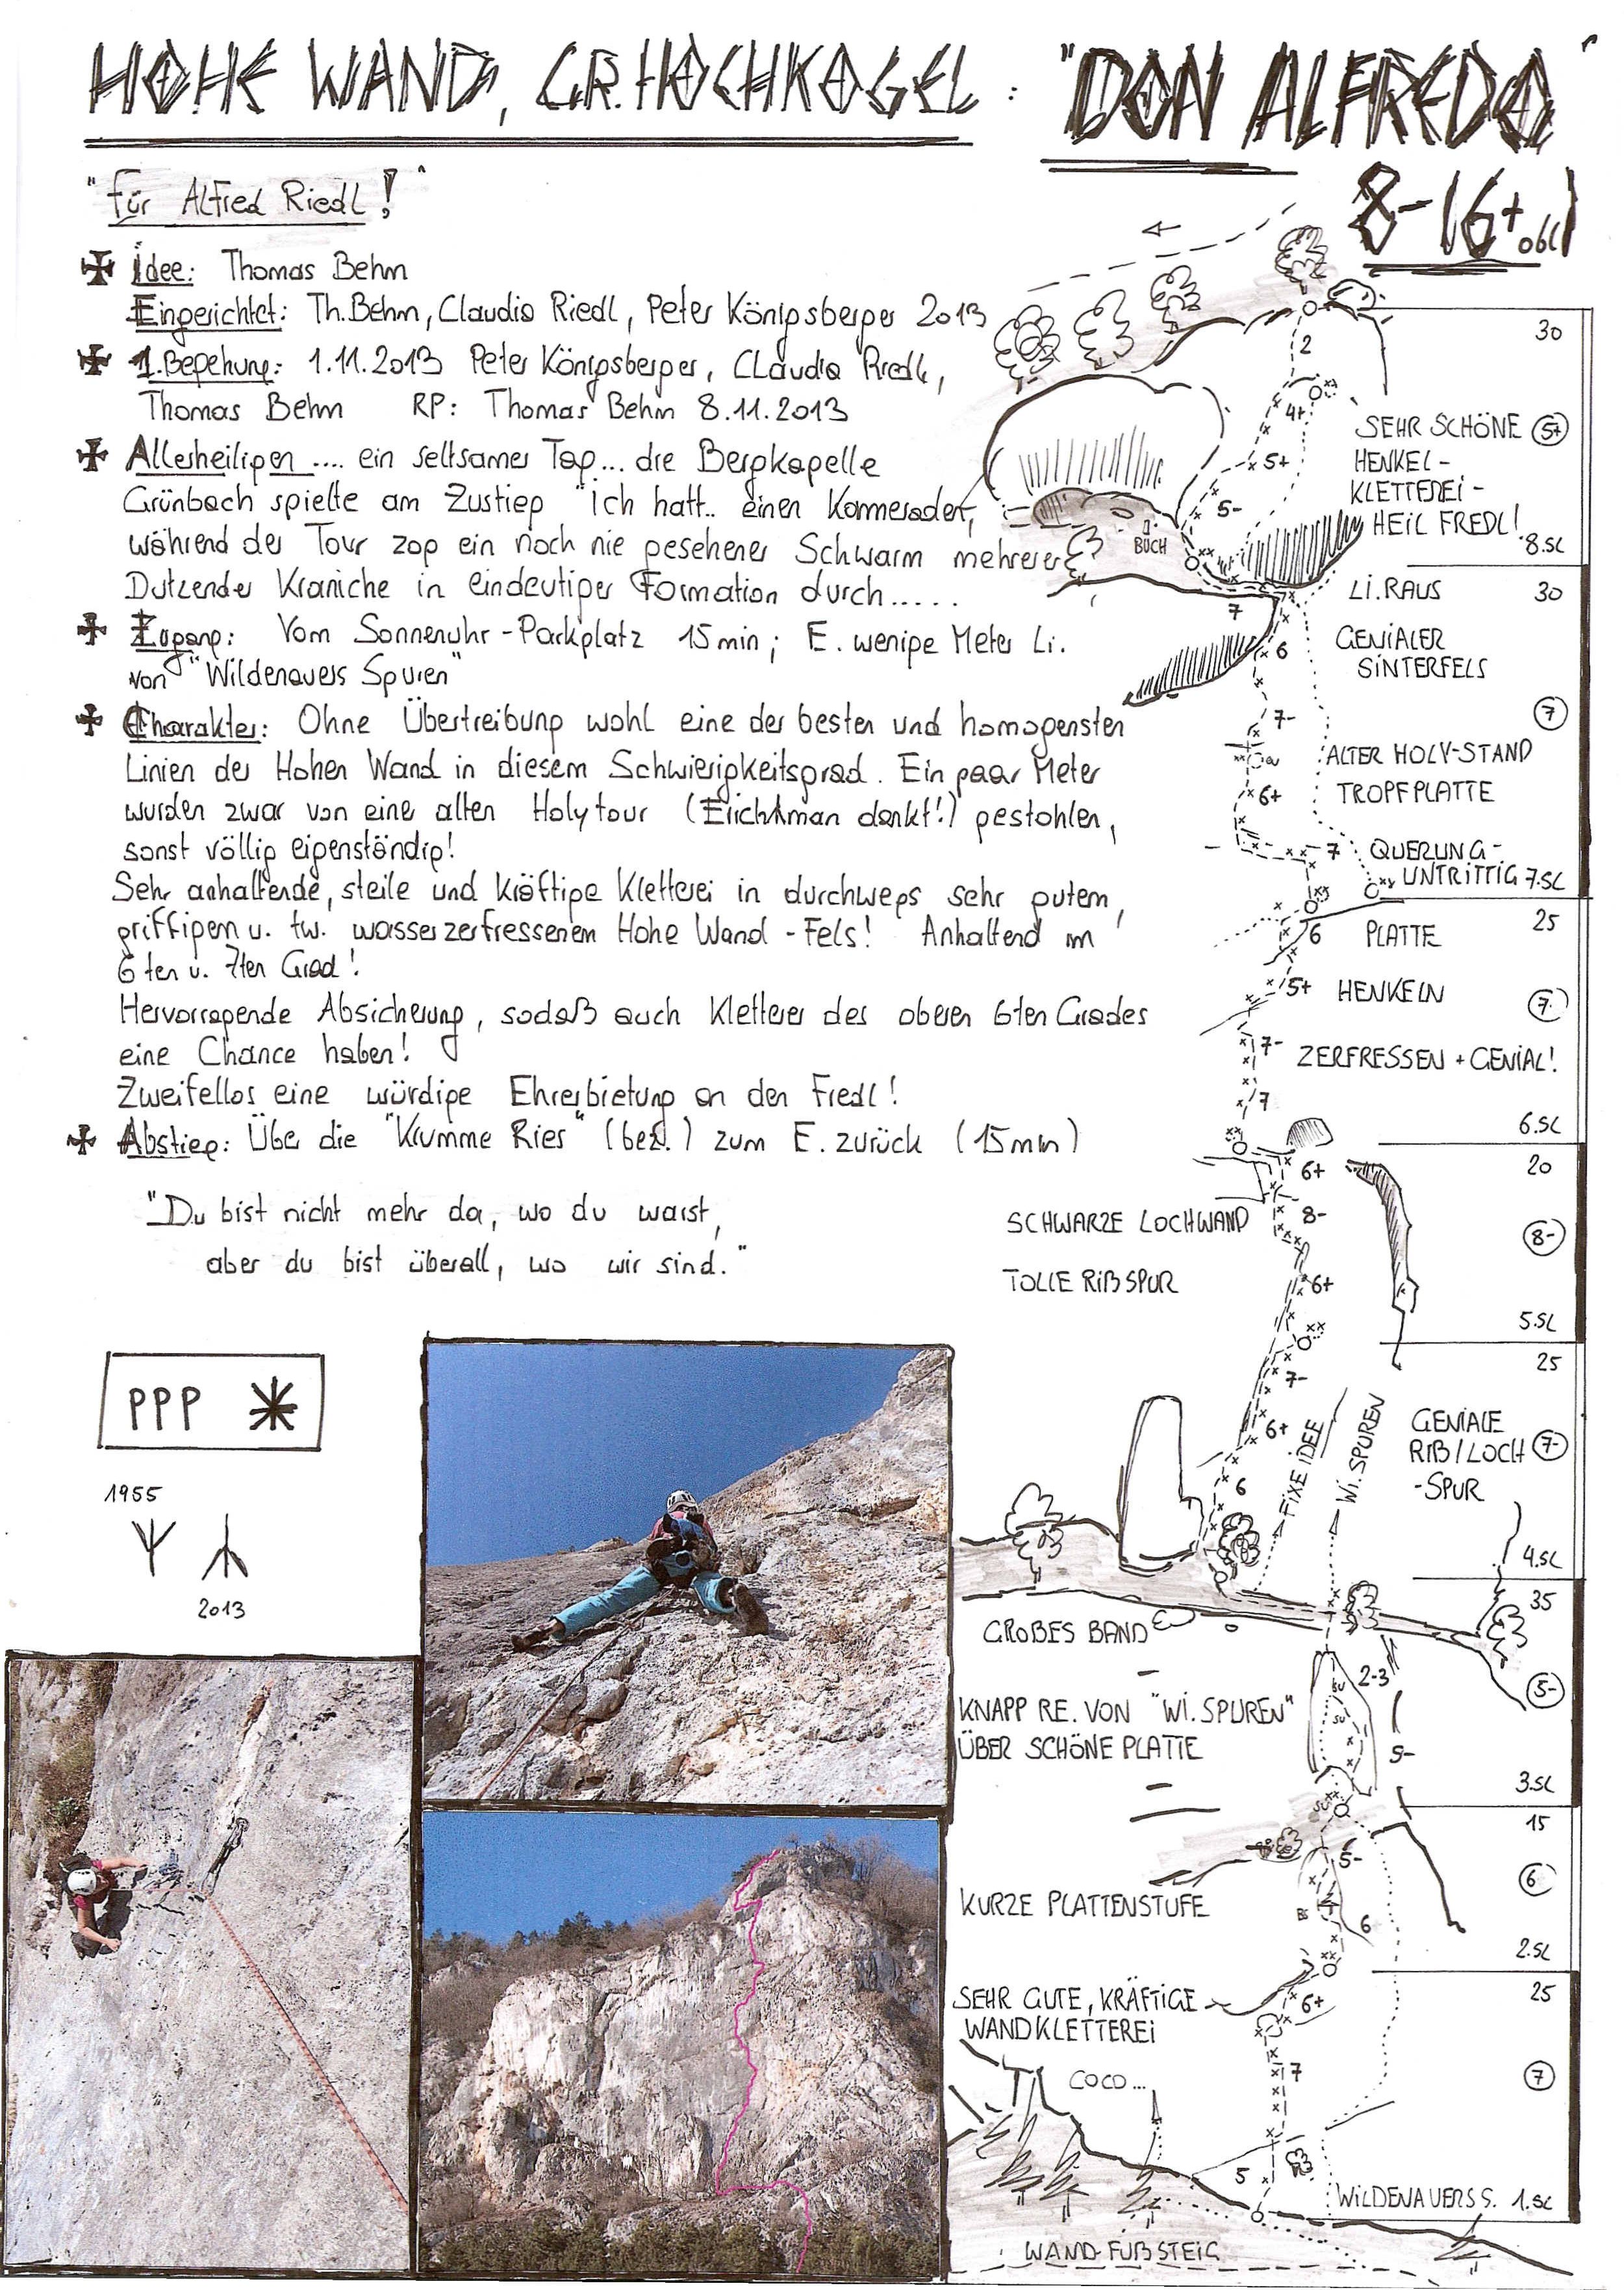 HOHE WAND, GR. HOCHKOGEL : "DON ALFREDO"
8- (6+ obl)
"für Alfred Riedl!"
Idee: Thomas Behm
Eingerichtet: Th. Behm, Claudia Riedl, Peter Königsberger 2013
1. Begehung: 1.11.2013 Peter Königsberger, Claudia Riedl,
Thomas Behm RP: Thomas Behm 8.11.2013
Allerheiligen .... ein seltsamer Tag... die Bergkapelle
Grünbach spielte am Zustieg "ich hatt.. einen Kammeraden",
während der Tour zog ein noch nie gesehener Schwarm mehrerer
Dutzender Kraniche in eindeutiger Formation durch.....
Zugang: Vom Sonnenuhr-Parkplatz 15min; E. wenige Meter Li.
von "Wildenauers Spuren"
Charakter: Ohne Übertreibung wohl eine der besten und homogensten
Linien der Hohen Wand in diesem Schwierigkeitsgrad. Ein paar Meter
wurden zwar von eine alten Holytour (Erich man dankt!) gestohlen,
sonst völlig eigenständig!
Sehr anhaltende, steile und kräftige Kletterei in durchwegs sehr gutem,
griffigem u. tw. wasserzerfressenem Hohe Wand - Fels! Anhaltend im
6ten u. 7ten Grad!
Hervorragende Absicherung, sodaß auch Kletterer des oberen 6ten Grades
eine Chance haben!
Zweifellos eine würdige Ehrerbietung an den Fredl!
Abstieg: Über die "Krumme Ries" (bez.) zum E. zurück (15min)
"Du bist nicht mehr da, wo du warst,
aber du bist überall, wo wir sind."
PPP
1955
2013
30
2
4+
SEHR SCHÖNE 5+
5+
HENKEL-
KLETTEREI-
5-
HEIL FREDL!
BUCH
8.SL
LI. RAUS 30
7
6
GENIALER
SINTERFELS
7-
7
ALTER HOLY-STAND
6+
TROPFPLATTE
7
QUERUNG-
UNTRITTIG 7.SL
25
6
PLATTE
5+
HENKELN
7
7-
ZERFRESSEN + GENIAL!
7
6.SL
6+
20
SCHWARZE LOCHWAND
8-
8-
TOLLE RIßSPUR
6+
5.SL
25
7-
6+
FIXE IDEE
WI. SPUREN
GENIALE
RIß/LOCH 7-
-SPUR
6
4.SL
35
GROßES BAND
2-3
5-
KNAPP RE. VON "WI. SPUREN"
ÜBER SCHÖNE PLATTE
5-
3.SL
15
5-
6
KURZE PLATTENSTUFE
6
2.SL
25
SEHR GUTE, KRÄFTIGE
WANDKLETTEREI
6+
COCO...
7
7
5
WILDENAUERS S. 1.SL
WAND-FUßSTEIG